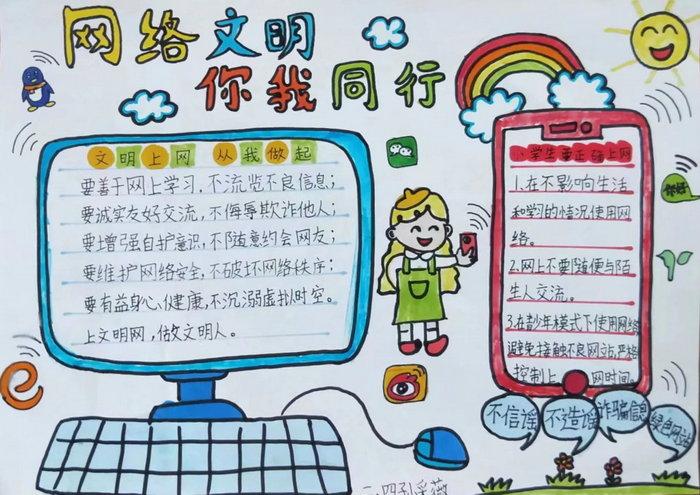 网络文明
你我同行
文明上网 从我做起
要善于网上学习,不流览不良信息;
要诚实友好交流,不侮辱欺诈他人;
要增强自护意识,不随意约会网友;
要维护网络安全,不破坏网络秩序;
要有益身心健康,不沉溺虚拟时空。
上文明网,做文明人。
学生要正确上网
1.在不影响生活
和学习的情况使用网
络。
2.网上不要随便与陌
生人交流。
3.在青少年模式下使用网络
避免接触不良网站,严格
控制上网时间。
不信谣
不造谣
诈骗信息
绿色
二.四孙